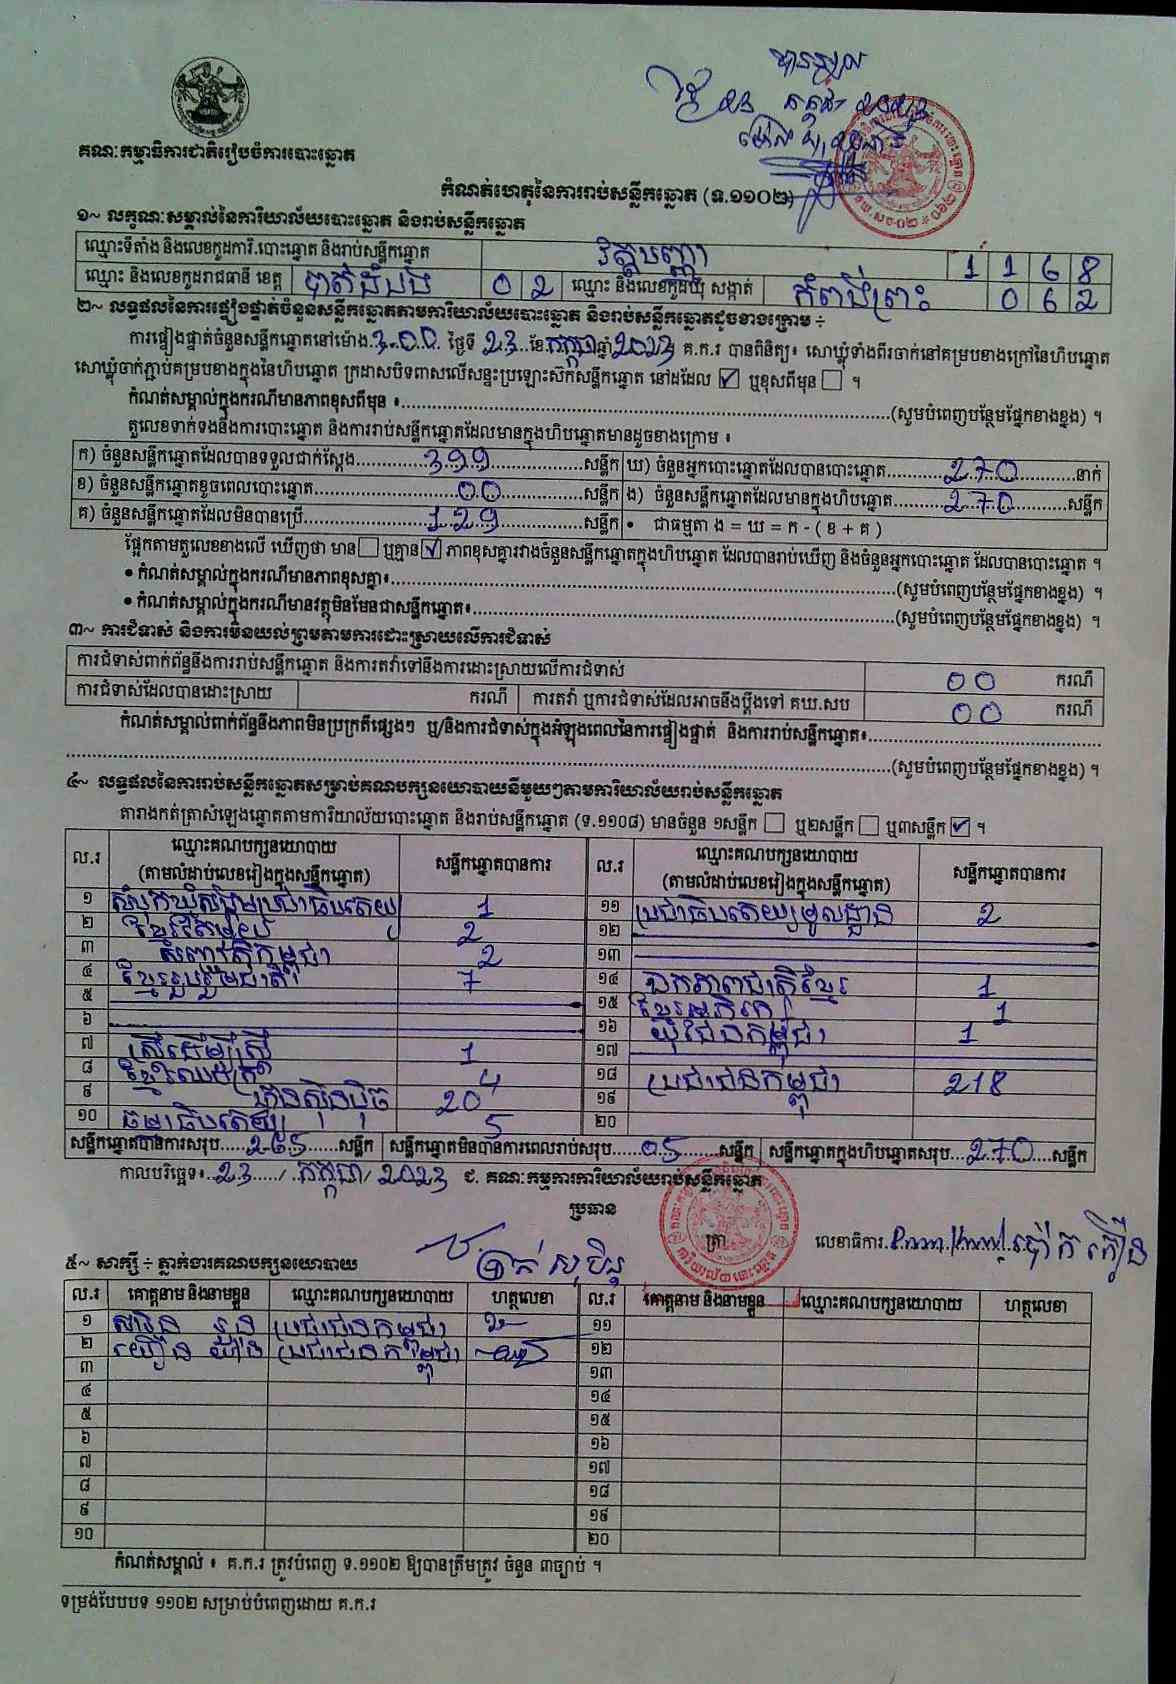 បានឃើញ
ថ្ងៃទី 23 កក្កដា 2023
គណៈកម្មាធិការជាតិរៀបចំការបោះឆ្នោត
កំណត់ហេតុនៃការរាប់សន្លឹកឆ្នោត (ទ.១១០២)
១~ លក្ខណៈសម្គាល់នៃការិយាល័យបោះឆ្នោត និងរាប់សន្លឹកឆ្នោត
ឈ្មោះទីតាំង និងលេខកូដការិ.បោះឆ្នោត និងរាប់សន្លឹកឆ្នោត វត្តបញ្ញា 1 1 6 8
ឈ្មោះ និងលេខកូដរាជធានី ខេត្ត បាត់ដំបង 0 2 ឈ្មោះ និងលេខកូដឃុំ សង្កាត់ កំពង់ព្រះ 0 6 2
២~ លទ្ធផលនៃការផ្ទៀងផ្ទាត់ចំនួនសន្លឹកឆ្នោតតាមការិយាល័យបោះឆ្នោត និងរាប់សន្លឹកឆ្នោតដូចខាងក្រោម ÷
ការផ្ទៀងផ្ទាត់ចំនួនសន្លឹកឆ្នោតនៅម៉ោង 3:00 ថ្ងៃទី 23 ខែ កក្កដា ឆ្នាំ 2023 គ.ក.រ បានពិនិត្យ៖ សោឃ្លុំទាំងពីរចាក់នៅគម្របខាងក្រៅនៃហិបឆ្នោត
សោឃ្លុំចាក់ភ្ជាប់គម្របខាងក្នុងនៃហិបឆ្នោត ក្រដាសបិទពាសលើសន្ទះប្រឡោះស៊កសន្លឹកឆ្នោត នៅដដែល ☑ ឬខុសពីមុន ☐ ។
កំណត់សម្គាល់ក្នុងករណីមានភាពខុសពីមុន ៖ (សូមបំពេញបន្ថែមផ្នែកខាងខ្នង) ។
តួលេខទាក់ទងនឹងការបោះឆ្នោត និងការរាប់សន្លឹកឆ្នោតដែលមានក្នុងហិបឆ្នោតមានដូចខាងក្រោម ៖
ក) ចំនួនសន្លឹកឆ្នោតដែលបានទទួលជាក់ស្តែង 399 សន្លឹក ឃ) ចំនួនអ្នកបោះឆ្នោតដែលបានបោះឆ្នោត 270 នាក់
ខ) ចំនួនសន្លឹកឆ្នោតខូចពេលបោះឆ្នោត 00 សន្លឹក ង) ចំនួនសន្លឹកឆ្នោតដែលមានក្នុងហិបឆ្នោត 270 សន្លឹក
គ) ចំនួនសន្លឹកឆ្នោតដែលមិនបានប្រើ 129 សន្លឹក • ជាធម្មតា ង = ឃ = ក - ( ខ + គ )
ផ្អែកតាមតួលេខខាងលើ ឃើញថា មាន ☐ ឬគ្មាន ☑ ភាពខុសគ្នារវាងចំនួនសន្លឹកឆ្នោតក្នុងហិបឆ្នោត ដែលបានរាប់ឃើញ និងចំនួនអ្នកបោះឆ្នោត ដែលបានបោះឆ្នោត ។
• កំណត់សម្គាល់ក្នុងករណីមានភាពខុសគ្នា៖ (សូមបំពេញបន្ថែមផ្នែកខាងខ្នង) ។
• កំណត់សម្គាល់ក្នុងករណីមានវត្ថុមិនមែនជាសន្លឹកឆ្នោត៖ (សូមបំពេញបន្ថែមផ្នែកខាងខ្នង) ។
៣~ ការជំទាស់ និងការមិនយល់ព្រមតាមការដោះស្រាយលើការជំទាស់
ការជំទាស់ពាក់ព័ន្ធនឹងការរាប់សន្លឹកឆ្នោត និងការតវ៉ាទៅនឹងការដោះស្រាយលើការជំទាស់ 00 ករណី
ការជំទាស់ដែលបានដោះស្រាយ ករណី ការតវ៉ា ឬការជំទាស់ដែលអាចនឹងប្តឹងទៅ គឃ.សប 00 ករណី
កំណត់សម្គាល់ពាក់ព័ន្ធនឹងភាពមិនប្រក្រតីផ្សេងៗ ឬ/និងការជំទាស់ក្នុងអំឡុងពេលនៃការផ្ទៀងផ្ទាត់ និងការរាប់សន្លឹកឆ្នោត៖
(សូមបំពេញបន្ថែមផ្នែកខាងខ្នង) ។
៤~ លទ្ធផលនៃការរាប់សន្លឹកឆ្នោតសម្រាប់គណបក្សនយោបាយនីមួយៗតាមការិយាល័យរាប់សន្លឹកឆ្នោត
តារាងកត់ត្រាសំឡេងឆ្នោតតាមការិយាល័យបោះឆ្នោត និងរាប់សន្លឹកឆ្នោត (ទ.១១០៨) មានចំនួន ១សន្លឹក ☐ ឬ២សន្លឹក ☐ ឬ៣សន្លឹក ☑ ។
ល.រ ឈ្មោះគណបក្សនយោបាយ (តាមលំដាប់លេខរៀងក្នុងសន្លឹកឆ្នោត) សន្លឹកឆ្នោតបានការ ល.រ ឈ្មោះគណបក្សនយោបាយ (តាមលំដាប់លេខរៀងក្នុងសន្លឹកឆ្នោត) សន្លឹកឆ្នោតបានការ
១ សំបុកឃ្មុំសង្គមប្រជាធិបតេយ្យ 1 ១១ ប្រជាធិបតេយ្យមូលដ្ឋាន 2
២ ខ្មែរតែមួយ 2 ១២
៣ សញ្ជាតិកម្ពុជា 2 ១៣
៤ ខ្មែររួបរួមជាតិ 7 ១៤ ឯកភាពជាតិខ្មែរ 1
៥ ១៥ ខ្មែរអភិរក្ស 1
៦ ១៦ យុវជនកម្ពុជា 1
៧ ស្រីដើម្បីស្រី 1 ១៧
៨ ខ្មែរឈប់ក្រ 4 ១៨ ប្រជាជនកម្ពុជា 218
៩ ហ្វ៊ុនស៊ិនប៉ិច 20 ១៩
១០ ធម្មាធិបតេយ្យ 5 ២០
សន្លឹកឆ្នោតបានការសរុប 265 សន្លឹក សន្លឹកឆ្នោតមិនបានការពេលរាប់សរុប 05 សន្លឹក សន្លឹកឆ្នោតក្នុងហិបឆ្នោតសរុប 270 សន្លឹក
កាលបរិច្ឆេទ៖ 23 / កក្កដា / 2023 ជ. គណៈកម្មការការិយាល័យរាប់សន្លឹកឆ្នោត
ប្រធាន
ត្រា លេខាធិការ
៥~ សាក្សី ÷ ភ្នាក់ងារគណបក្សនយោបាយ
ល.រ គោត្តនាម និងនាមខ្លួន ឈ្មោះគណបក្សនយោបាយ ហត្ថលេខា ល.រ គោត្តនាម និងនាមខ្លួន ឈ្មោះគណបក្សនយោបាយ ហត្ថលេខា
១ ប្រជាជនកម្ពុជា ១១
២ ប្រជាជនកម្ពុជា ១២
៣ ១៣
៤ ១៤
៥ ១៥
៦ ១៦
៧ ១៧
៨ ១៨
៩ ១៩
១០ ២០
កំណត់សម្គាល់ ៖ គ.ក.រ ត្រូវបំពេញ ទ.១១០២ ឱ្យបានត្រឹមត្រូវ ចំនួន ៣ច្បាប់ ។
ទម្រង់បែបបទ ១១០២ សម្រាប់បំពេញដោយ គ.ក.រ